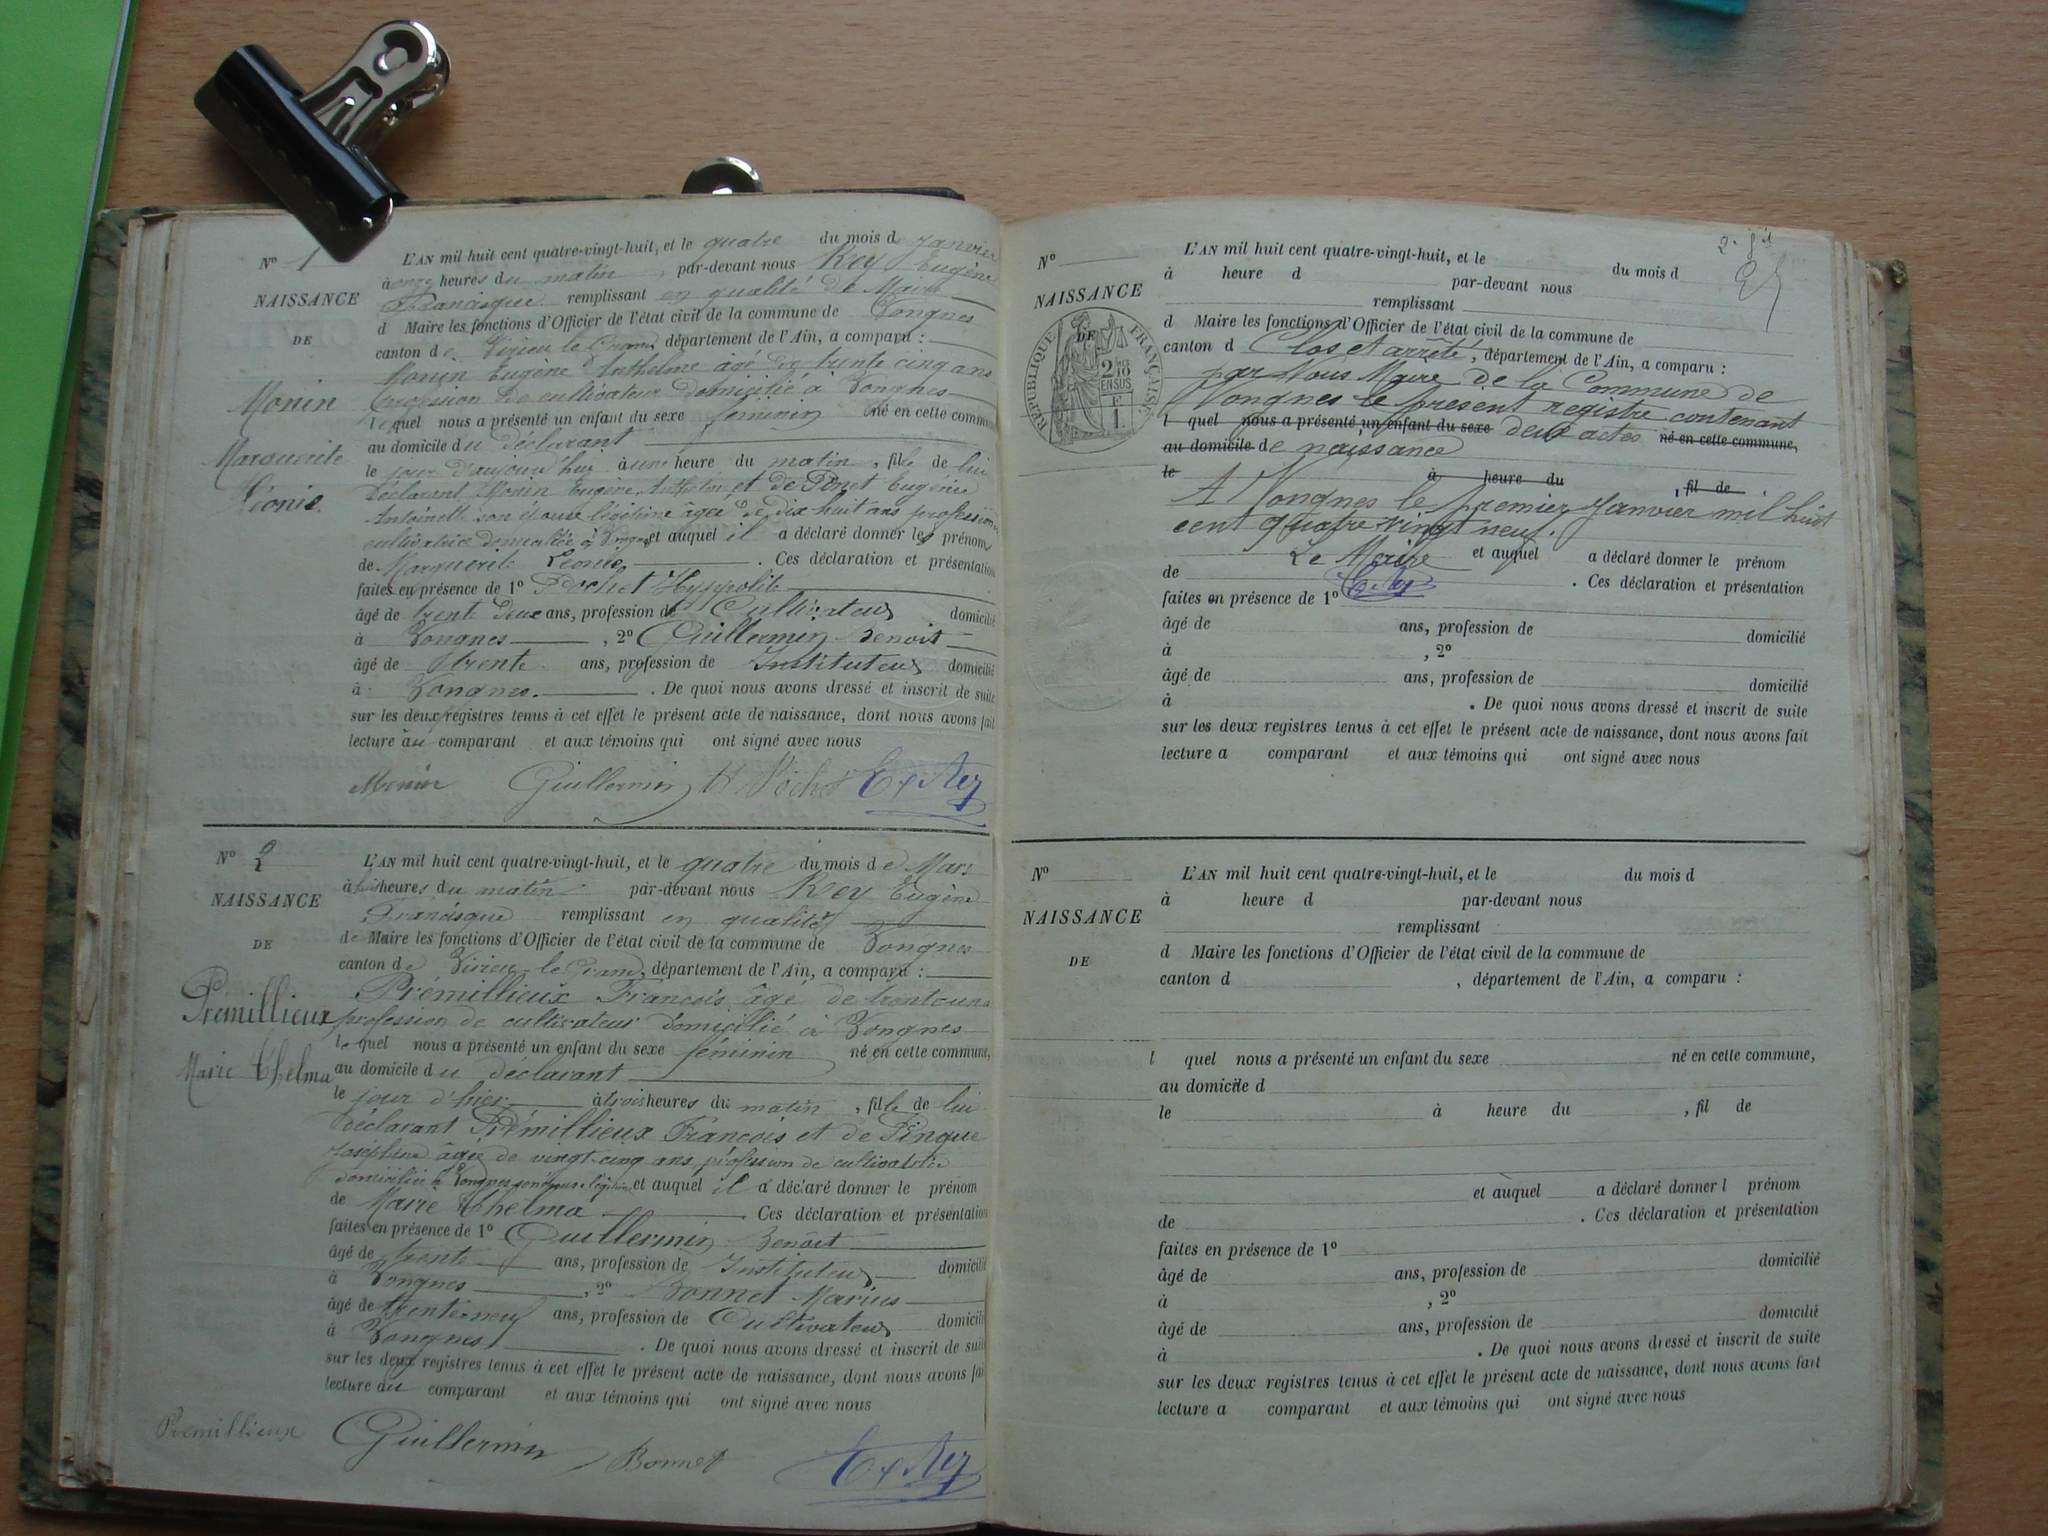 N° 1
NAISSANCE
DE
Monin
Marguerite
Léonie
L'AN mil huit cent quatre-vingt-huit, et le quatre du mois d Janvier
à onze heures du matin, par-devant nous Rey Eugène
Francisque remplissant en qualité de Maire
d Maire les fonctions d'Officier de l'état civil de la commune de Vongnes
canton de Virieu le Grand, département de l'Ain, a comparu :
Monin Eugène Anthelme âgé de trente cinq ans
profession de cultivateur domicilié à Vongnes
lequel nous a présenté un enfant du sexe féminin né en cette commune
au domicile du déclarant
le jour d'aujourd'hui à une heure du matin, fille de lui
déclarant Monin Eugène Anthelme et de Penet Eugénie
Antoinette son épouse légitime âgée de dix huit ans profession
cultivatrice domiciliée à Vongnes et auquel il a déclaré donner les prénoms
de Marguerite Léonie. Ces déclaration et présentation
faites en présence de 1° Pochet Hyppolite
âgé de trente deux ans, profession de Cultivateur domicilié
à Vongnes, 2° Guillermin Benoit
âgé de trente ans, profession de Instituteur domicilié
à Vongnes. De quoi nous avons dressé et inscrit de suite
sur les deux registres tenus à cet effet le présent acte de naissance, dont nous avons fait
lecture au comparant et aux témoins qui ont signé avec nous
Monin Guillermin H Pochet E Rey
N° 2
NAISSANCE
DE
Prémillieux
Marie Thelma
L'AN mil huit cent quatre-vingt-huit, et le quatre du mois de Mars
à heures du matin par-devant nous Rey Eugène
Francisque remplissant en qualité
de Maire les fonctions d'Officier de l'état civil de la commune de Vongnes
canton de Virieu-le-Grand, département de l'Ain, a comparu :
Prémillieux François âgé de trente un ans
profession de cultivateur domicilié à Vongnes
lequel nous a présenté un enfant du sexe féminin né en cette commune,
au domicile du déclarant
le jour d'hier à trois heures du matin, fille de lui
déclarant Prémillieux François et de Pingue
Joséphine âgée de vingt-cinq ans, profession de cultivatrice
domiciliée à Vongnes son épouse légitime et auquel il a déclaré donner le prénom
de Marie Thelma. Ces déclaration et présentation
faites en présence de 1° Guillermin Benoît
âgé de trente ans, profession de Instituteur domicilié
à Vongnes, 2° Bonnet Marius
âgé de trente neuf ans, profession de Cultivateur domicilié
à Vongnes. De quoi nous avons dressé et inscrit de suite
sur les deux registres tenus à cet effet le présent acte de naissance, dont nous avons fait
lecture au comparant et aux témoins qui ont signé avec nous
Prémillieux Guillermin Bonnet E Rey
N°
NAISSANCE
DE
RÉPUBLIQUE FRANÇAISE
L'AN mil huit cent quatre-vingt-huit, et le du mois d
à heure d par-devant nous
remplissant
d Maire les fonctions d'Officier de l'état civil de la commune de
canton d Clos et arrêté, département de l'Ain, a comparu :
par Nous Maire de la Commune de
Vongnes le présent registre contenant
l quel nous a présenté un enfant du sexe deux actes né en cette commune,
au domicile de naissance
le à heure du , fil de .
A Vongnes le premier Janvier mil huit
cent quatre vingt neuf.
Le Maire et auquel a déclaré donner le prénom
de . Ces déclaration et présentation
faites en présence de 1° E Rey
âgé de ans, profession de domicilié
à , 2°
âgé de ans, profession de domicilié
à . De quoi nous avons dressé et inscrit de suite
sur les deux registres tenus à cet effet le présent acte de naissance, dont nous avons fait
lecture a comparant et aux témoins qui ont signé avec nous
N°
NAISSANCE
DE
L'AN mil huit cent quatre-vingt-huit, et le du mois d
à heure d par-devant nous
remplissant
d Maire les fonctions d'Officier de l'état civil de la commune de
canton d , département de l'Ain, a comparu :
l quel nous a présenté un enfant du sexe né en cette commune,
au domicile d
le à heure du , fil de
et auquel a déclaré donner l prénom
de . Ces déclaration et présentation
faites en présence de 1°
âgé de ans, profession de domicilié
à , 2°
âgé de ans, profession de domicilié
à . De quoi nous avons dressé et inscrit de suite
sur les deux registres tenus à cet effet le présent acte de naissance, dont nous avons fait
lecture a comparant et aux témoins qui ont signé avec nous